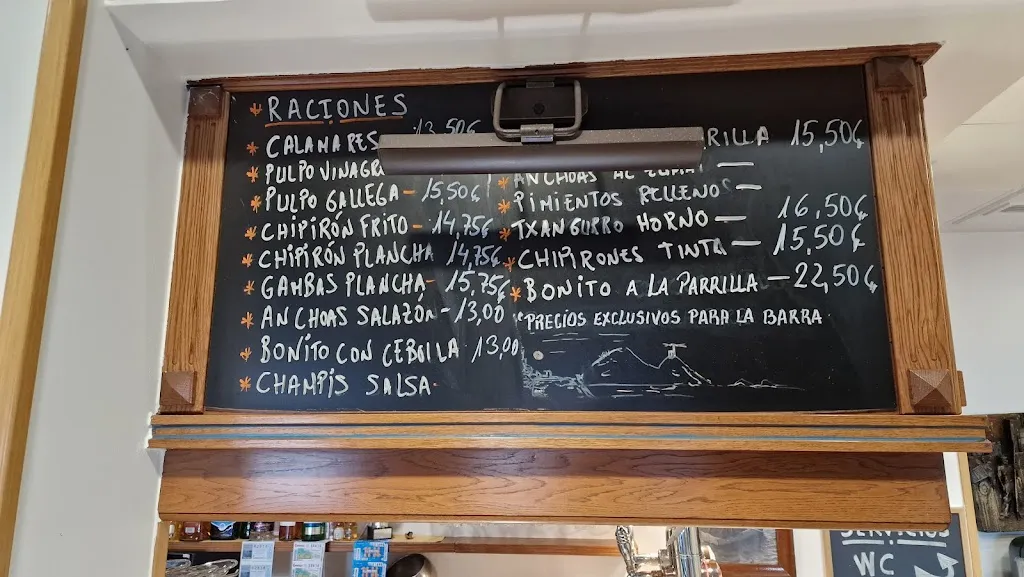 * RACIONES
* CALAMARES 13,50€
* PULPO VINAGR
* PULPO GALLEGA - 15,50€
* CHIPIRÓN FRITO - 14,75€
* CHIPIRÓN PLANCHA 14,75€
* GAMBAS PLANCHA - 15,75€
* ANCHOAS SALAZÓN - 13,00
* BONITO CON CEBOLLA 13,00
* CHAMPIS SALSA
RILLA 15,50€
* ANCHOAS AL
* PIMIENTOS RELLENOS —
* TXANGURRO HORNO — 16,50€
* CHIPIRONES TINTA — 15,50€
* BONITO A LA PARRILLA — 22,50€
*PRECIOS EXCLUSIVOS PARA LA BARRA.
SERVICIOS
WC